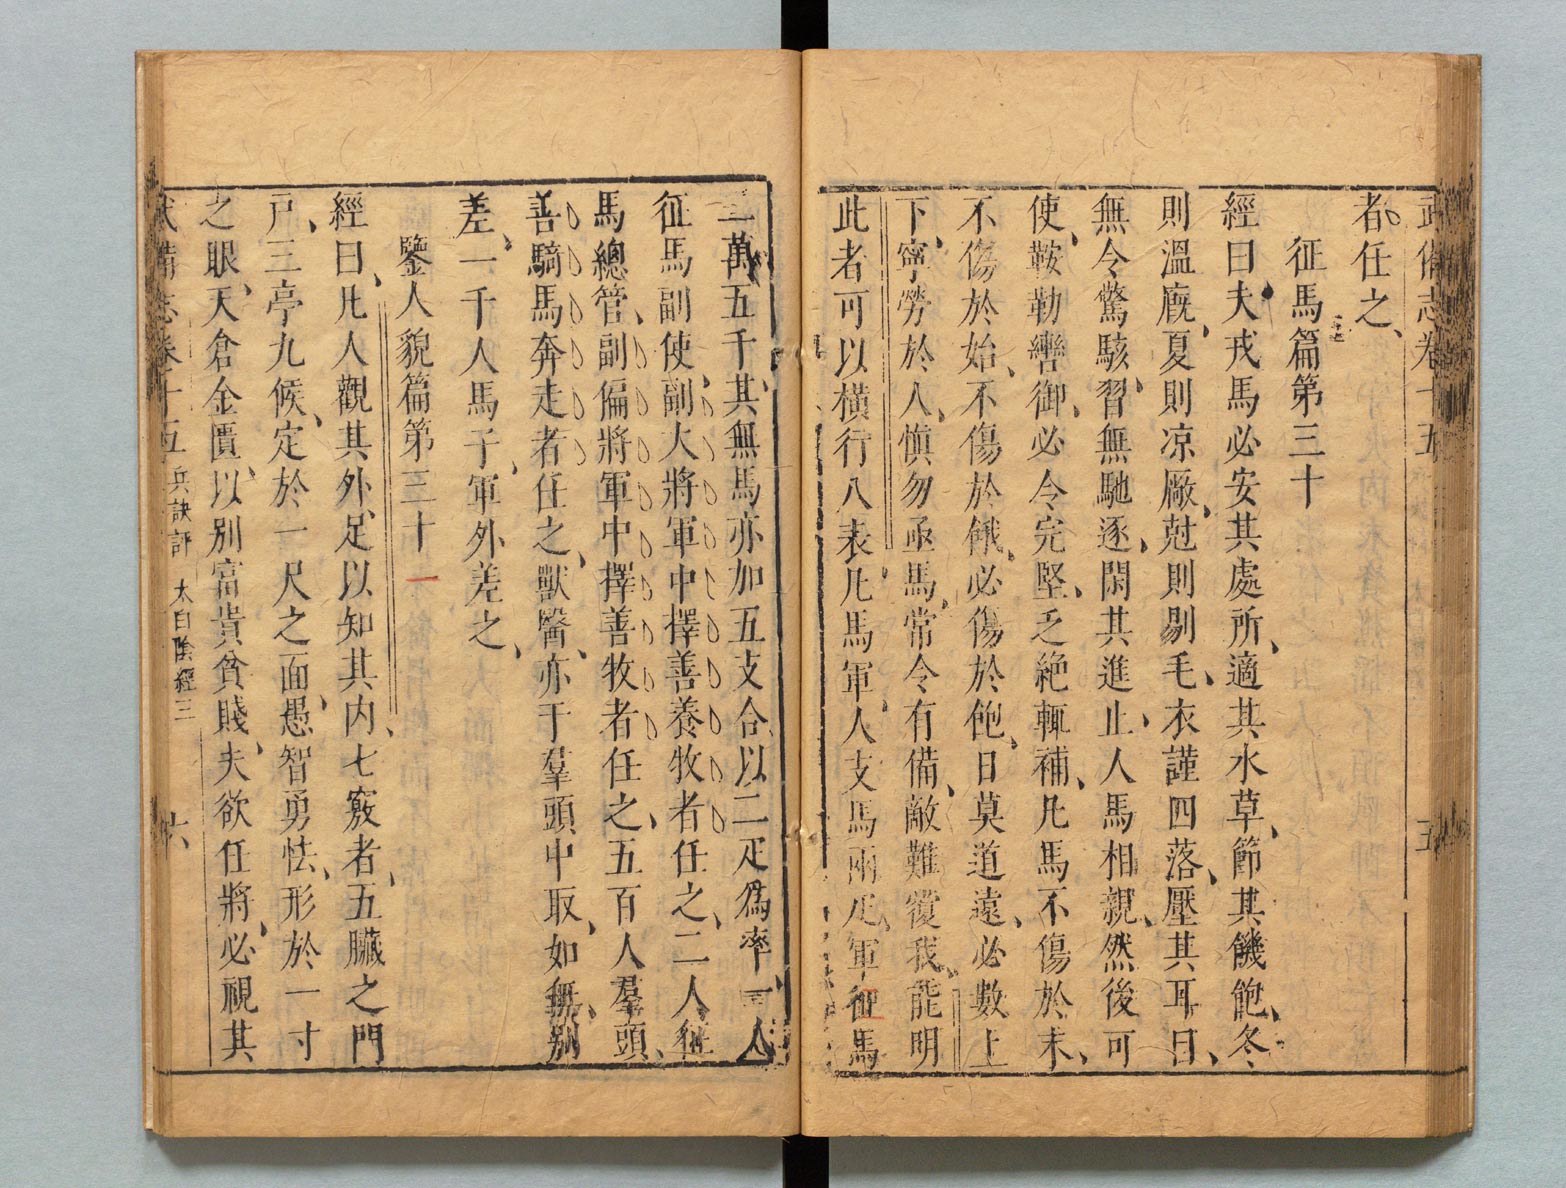 武備志卷十五
五
者任之、
征馬篇第三十
經曰夫戎馬必安其處所、適其水草、節其饑飽、冬
則溫廐、夏則凉厰、尅則剔毛、衣謹四落、壓其耳日、
無令驚駭、習無馳逐、閑其進止、人馬相親、然後可
使、鞍勒轡御、必令完堅、乏絶輒補、凡馬不傷於末、
不傷於始、不傷於餓、必傷於飽、日莫道遠、必數上
下、寧勞於人、愼勿亟馬、常令有備、敵難覆我、能明
此者可以橫行八表、凡馬軍、人支馬兩疋、軍征馬
二萬五千、其無馬亦加五支、合以二疋爲率、一人
征馬副使、副大將軍中擇善養牧者任之、二人征
馬總管、副偏將軍中擇善牧者任之、五百人羣頭、
善騎馬奔走者任之、獸醫、亦于羣頭中取、如無、别
差、一千人馬子、軍外差之、
鑒人貌篇第三十一
經曰、凡人觀其外、足以知其内、七竅者、五臟之門
戸、三亭九候、定於一尺之面、愚智勇怯、形於一寸
之眼、天倉金匱、以别富貴貧賤、夫欲任將、必視其
武備志卷十五 兵訣評 太白陰經三
六